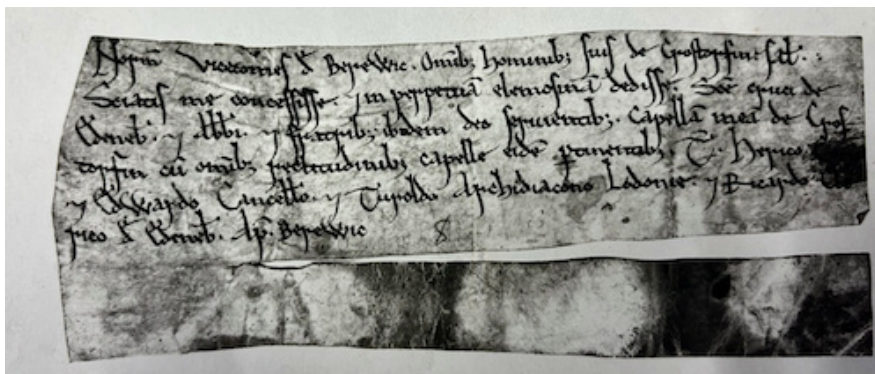 Norm̄ vicecomes d̄ Berewic. Om̄ib; hominib; suis de Crostorfine sal̄.:
Sciatis me concessisse. ⁊ in perpetuā elemosinā dedisse. Sc̄e cruci de
Edeneb̄. ⁊ abb̄i. ⁊ fratrib; ibidem deo servientib;. Capellā meā de Cros
torfin cū om̄ib; rectitudinib; capelle eidē ꝑtinentib;. T̄. Henrico
⁊ Edwardo Cancell̄o. ⁊ Turoldo Archidiacono Lodonie. ⁊ Ricardo
rico d̄ Edeneb̄. Ap̄. Berewic